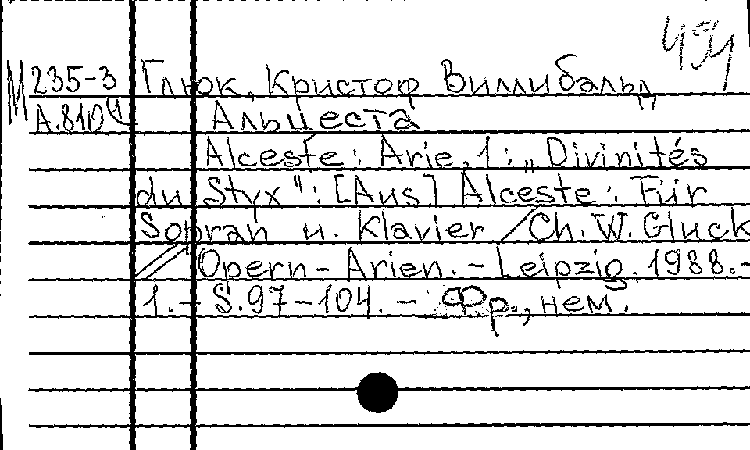 454
М 235-3 Глюк, Кристоф Виллибальд
А.8104 Альцеста
Alceste: Arie, 1: „Divinités
du Styx": [Aus] Alceste: Für
Sopran u. Klavier / Ch. W. Gluck
// Opern-Arien. - Leipzig. 1988. -
1. - S. 97-104. - Фр., нем.